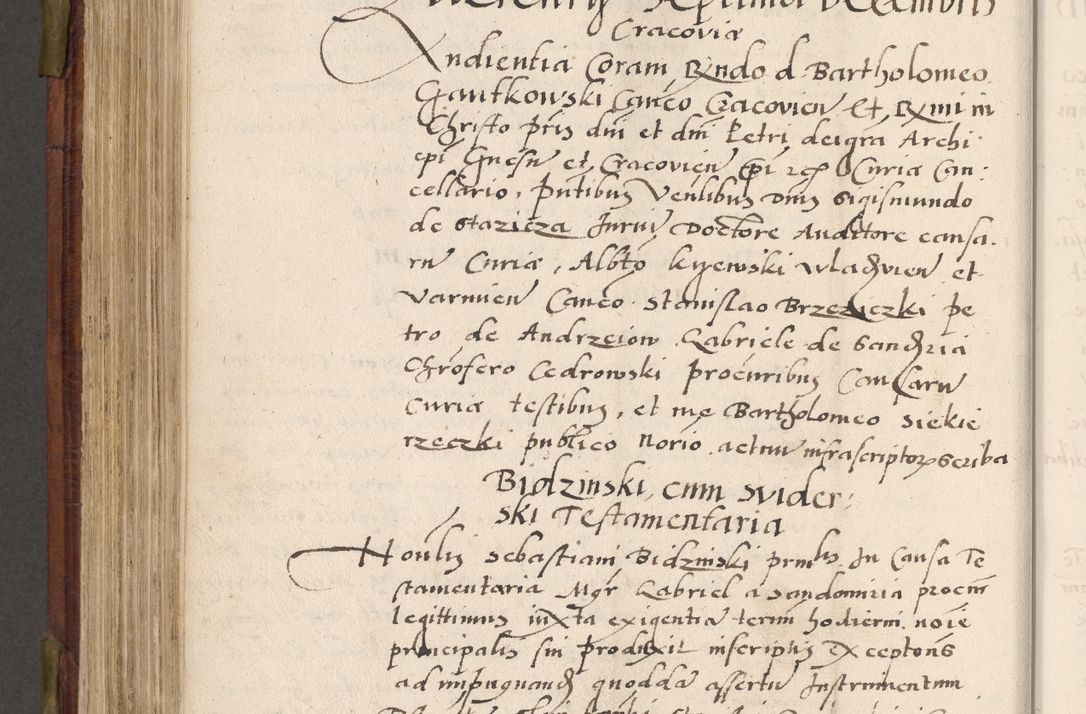 Veneris Septima Decembris
Cracoviæ
Audientia Coram Rndo d. Bartholomeo
Gantkowski Canco Cracovien Et Rmi in
Christo pris dni et dni Petri dei gra Archi
epi Gnesn et Cracovien Epi Curiæ Can:
cellario, pntibus Venlibus Dnis Sigismundo
de Staziza Juriu Doctore Auditore causa.
rn Curiæ, Albto kyewski wladzvien et
Varmien Canco. Stanislao Brzeziczki pe
tro de Andrzeiow Gabriele de Sandzria
Chrofero Cedrowski procuribus Causaru
Curiæ testibus, et me Bartholomeo Siekie
rzeczki publico Norio actuu infrascriptor Scriba
Bidzinski, cum Svider:
ski Testamentaria
Noulis Sebastiani Bidzinski prnlis In Causa Te
stamentaria Mgr Gabriel a Sandomiria procur
legittimus iuxta exigentia termi hodierni noie
principalis sui produxit inscriptis Exceptons
ad impugnand quodda assertu Instrumentum